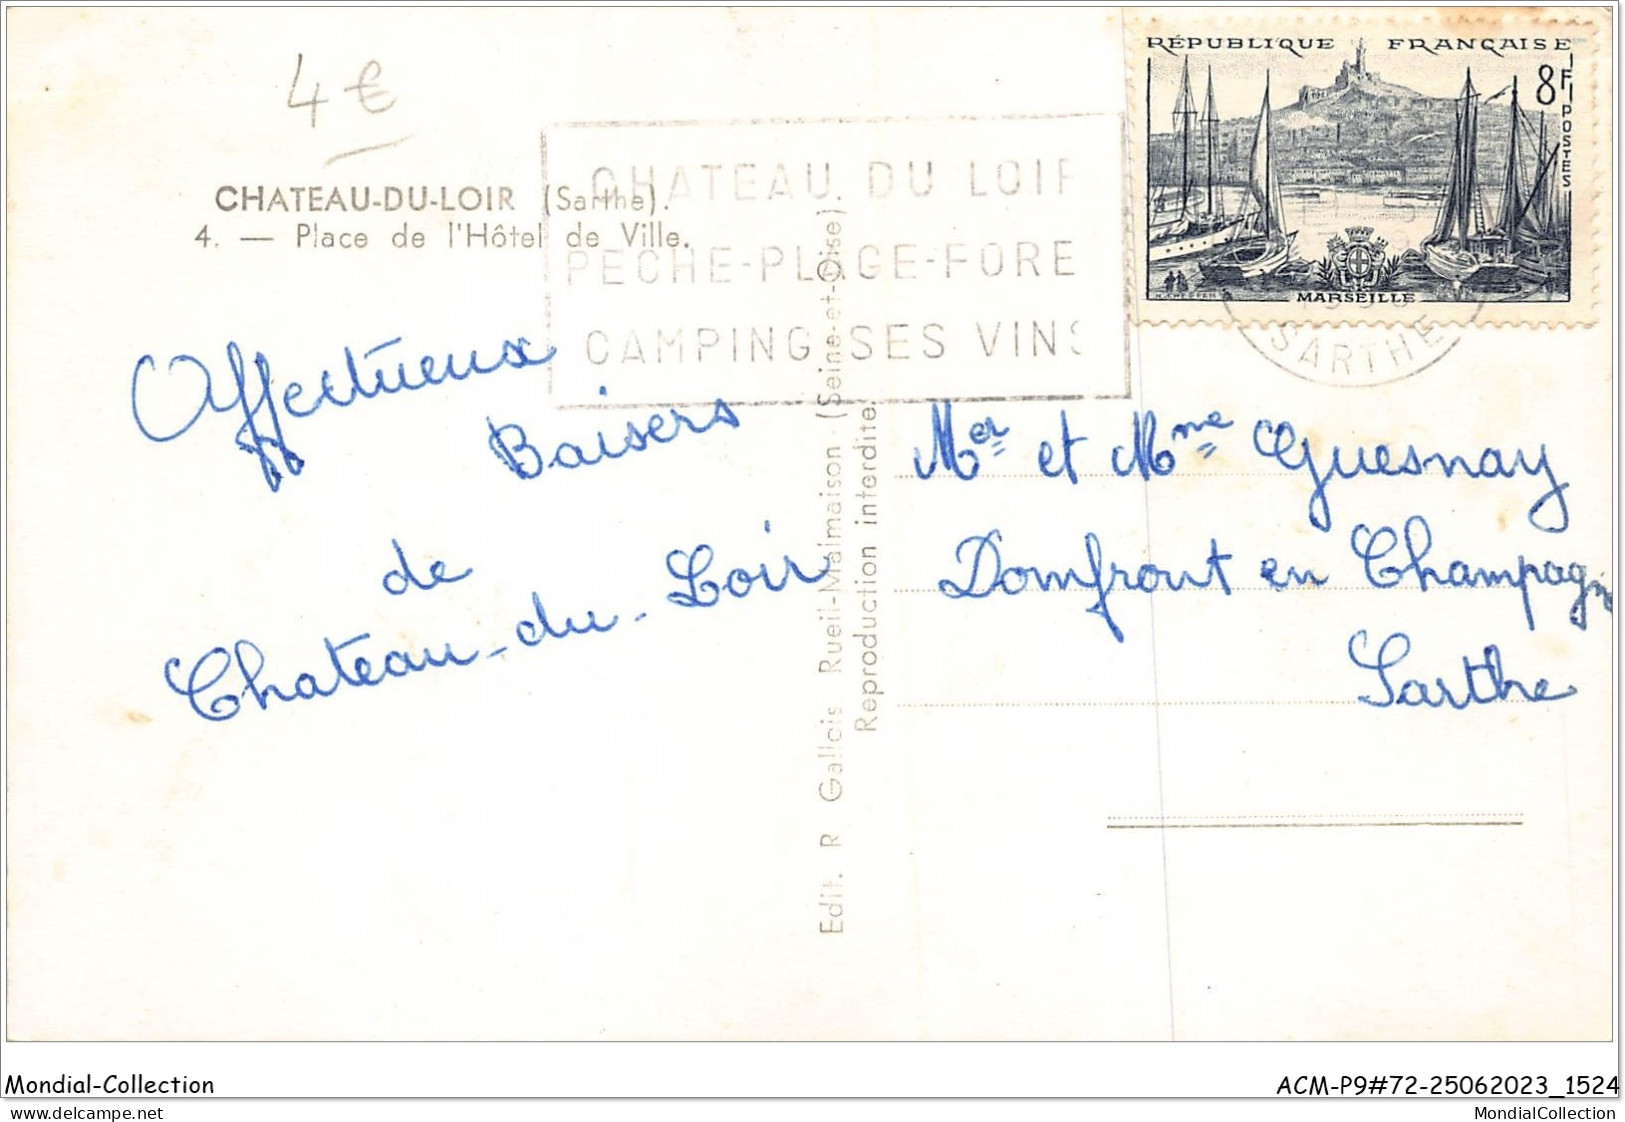 4 €
CHATEAU-DU-LOIR (Sarthe).
4. — Place de l'Hôtel de Ville.
CHATEAU DU LOIR
PECHE-PLAGE-FORE
CAMPING SES VINS
RÉPUBLIQUE FRANÇAISE
8F
POSTES
MARSEILLE
SARTHE
Affectueux
Baisers
de
Chateau-du-Loir
Edit. R Gallois Rueil-Malmaison (Seine-et-Oise).
Reproduction interdite.
Mer et Mme Guesnay
Domfront en Champagne
Sarthe
Mondial-Collection
ACM-P9#72-25062023_1524
MondialCollection